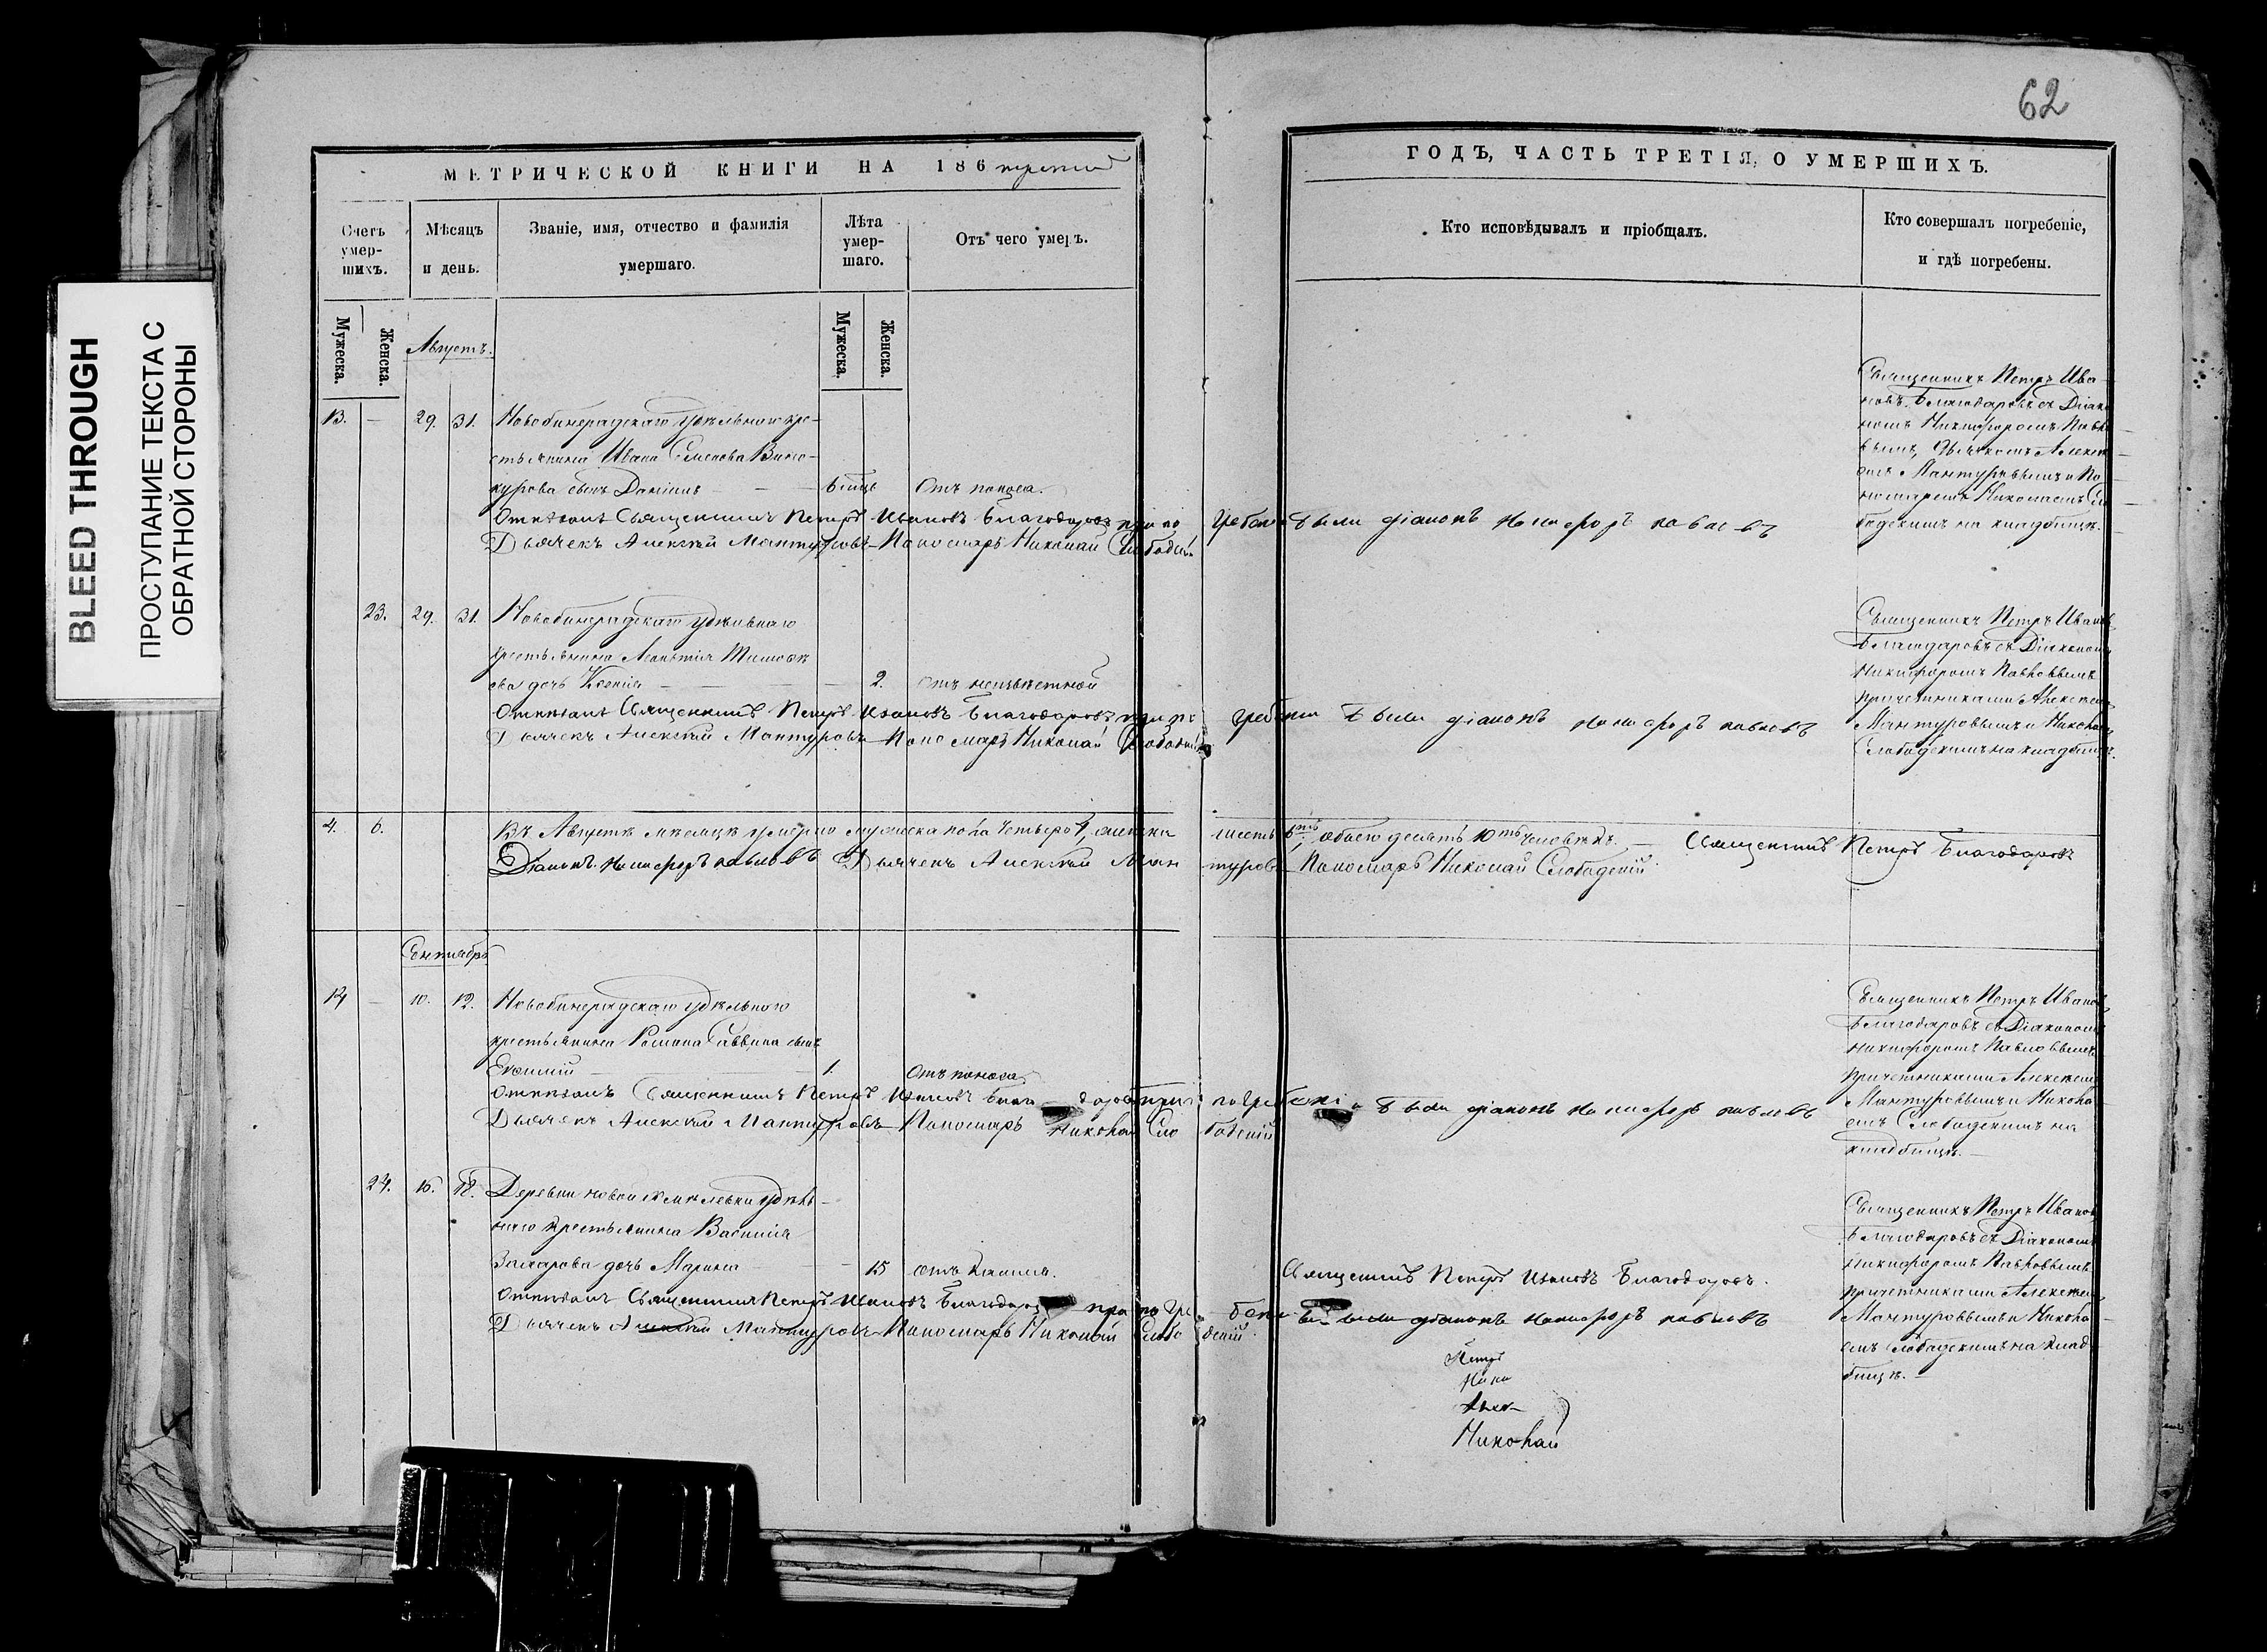 BLEED THROUGH
ПРОСТУПАНИЕ ТЕКСТА С
ОБРАТНОЙ СТОРОНЫ
62
МЕТРИЧЕСКОЙ КНИГИ НА 186 третій
Счетъ
умер-
шихъ.
Мѣсяцъ
и день.
Званіе, имя, отчество и фамилія
умершаго.
Лѣта
умер-
шаго.
Отъ чего умеръ.
Мужеска.
Женска.
Мужеска.
Женска.
Августъ.
13. — 29. 31. Новобинарадскаго удѣльнаго кре-
стьянина Ивана Семенова Вино-
курова сынъ — — Отъ поноса.
Отпѣвалъ Священникъ Петръ Ивановъ Благодаровъ при по
Дьячекъ Алексѣй Мантуровъ Пономарь Николай
23. 29. 31. Новобинарадскаго удѣльнаго
крестьянина Леонтія
ва дочь Ксенія — — 2. отъ неизвѣстной
Отпѣвалъ Священникъ Петръ Ивановъ Благодаровъ при по
Дьячекъ Алексѣй Мантуровъ Пономарь Николай
4. 6. Въ Августѣ мѣсяцѣ умерло мужеска пола четверо 4, женска
Діаконъ Никифоръ Павловъ Дьячекъ Алексѣй Ман
Сентябрь
14 — 10. 12. Новобинарадскаго удѣльнаго
крестьянина Романа Саввина сынъ
— 1. Отъ поноса
Отпѣвалъ Священникъ Петръ Ивановъ Благо даровъ при
Дьячекъ Алексѣй Мантуровъ Пономарь Николай Сло
24. 16. 18. Деревни Новой удѣль-
наго крестьянина Василія
Захарова дочь Марина — 15 отъ кашля.
Отпѣвалъ Священникъ Петръ Ивановъ Благодаровъ при по гре
Дьячекъ Алексѣй Мантуровъ Пономарь Николай Слобо
ГОДЪ, ЧАСТЬ ТРЕТІЯ, О УМЕРШИХЪ.
Кто исповѣдывалъ и пріобщалъ.
Кто совершалъ погребеніе,
и гдѣ погребены.
Священникъ Петръ Ива-
новъ Благодаровъ съ Діако
номъ Никифоромъ Павло
вымъ, Дьячкомъ Алексѣ
емъ Мантуровымъ и По
номаремъ Николаемъ Сло
бодскимъ на кладбищѣ.
были діаконъ Никифоръ Павловъ
Священникъ Петръ Ивановъ
Благодаровъ съ Діакономъ
Никифоромъ Павловымъ
причетниками Алексѣемъ
Мантуровымъ и Николаемъ
Слободскимъ на кладбищѣ.
были діаконъ Никифоръ Павловъ
шесть 6ть, обоего десять 10ть человѣкъ. — Священникъ Петръ Благодаровъ
туровъ Пономарь Николай Слободскій.
Священникъ Петръ Ивановъ
Благодаровъ съ Діакономъ
Никифоромъ Павловымъ
причетниками Алексѣемъ
Мантуровымъ и Никола
емъ Слободскимъ на
кладбищѣ. —
погребеніи были діаконъ Никифоръ Павловъ
Священникъ Петръ Ивановъ
Благодаровъ съ Діакономъ
Никифоромъ Павловымъ
причетниками Алексѣемъ
Мантуровымъ и Никола
емъ Слободскимъ на клад
бищѣ. —
Священникъ Петръ Ивановъ Благодаровъ.
были діаконъ Никифоръ Павловъ
Петръ
Ники
Алек
Николай